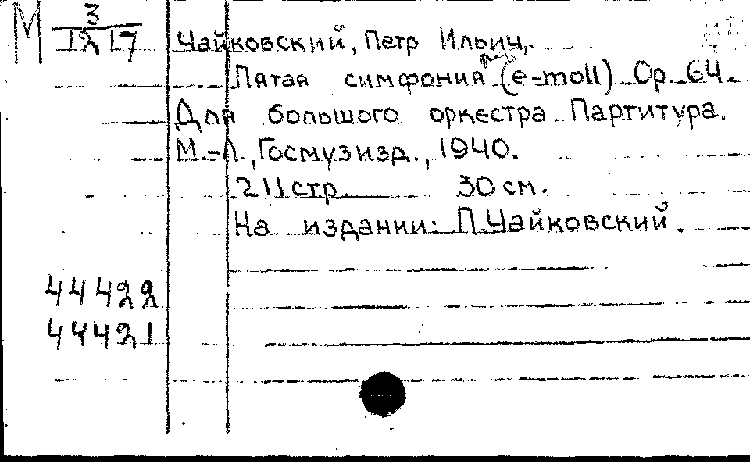 М 3
1217
Чайковский, Петр Ильич.
Пятая симфония (e-moll) Op. 64.
Для большого оркестра. Партитура.
М.-Л., Госмузизд., 1940.
211 стр. 30 см.
На издании: П. Чайковский.
44422
44421